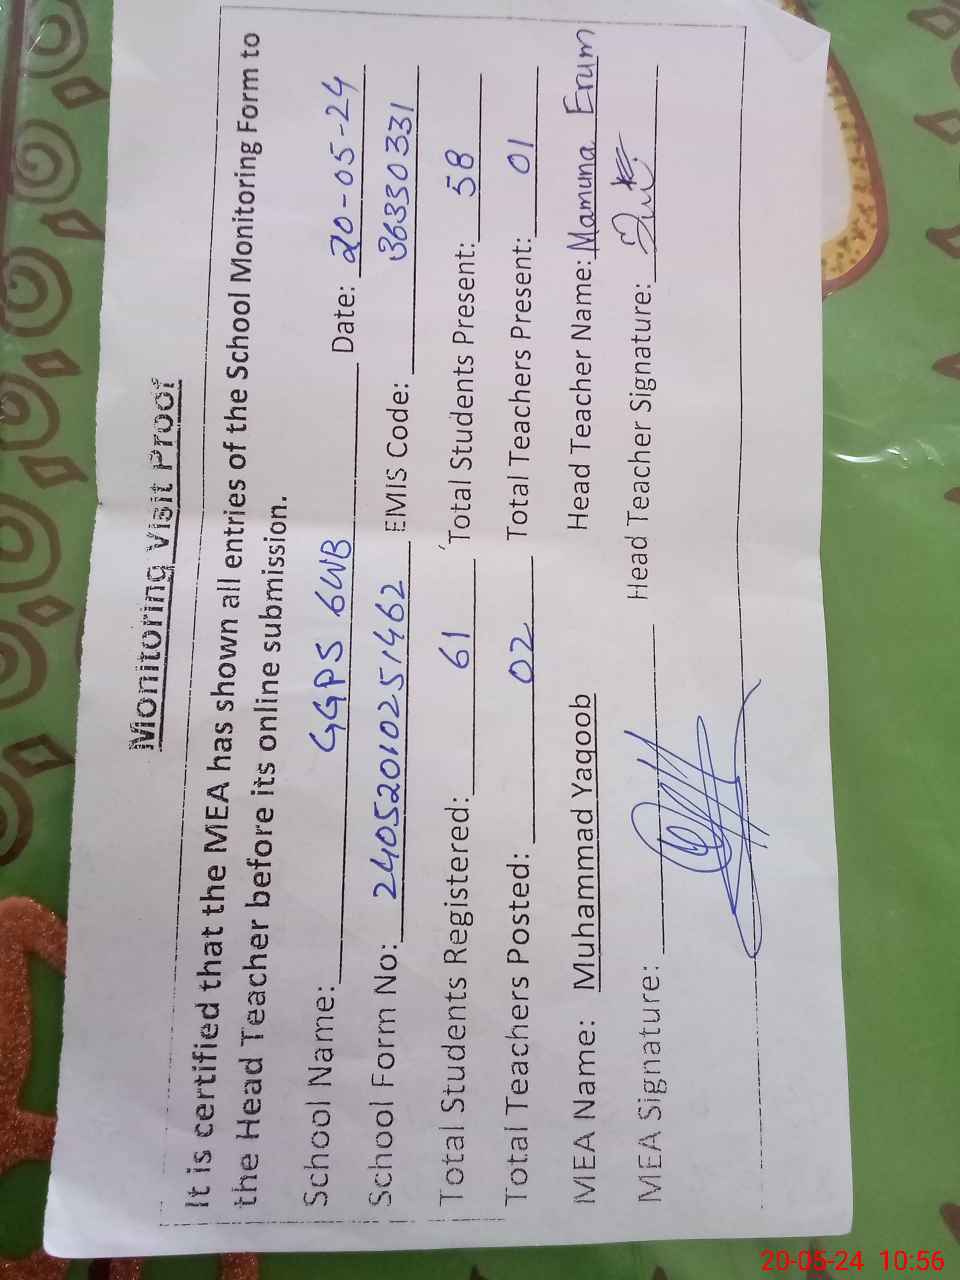 Monitoring Visit Proof
It is certified that the MEA has shown all entries of the School Monitoring Form to
the Head Teacher before its online submission.
School Name: GGPS 6WB Date: 20-05-24
School Form No: 240520101025 1462 EMIS Code: 36330331
Total Students Registered: 61 Total Students Present: 58
Total Teachers Posted: 02 Total Teachers Present: 01
MEA Name: Muhammad Yaqoob Head Teacher Name: Mamuna Erum
MEA Signature: Head Teacher Signature:
20-05-24 10:56